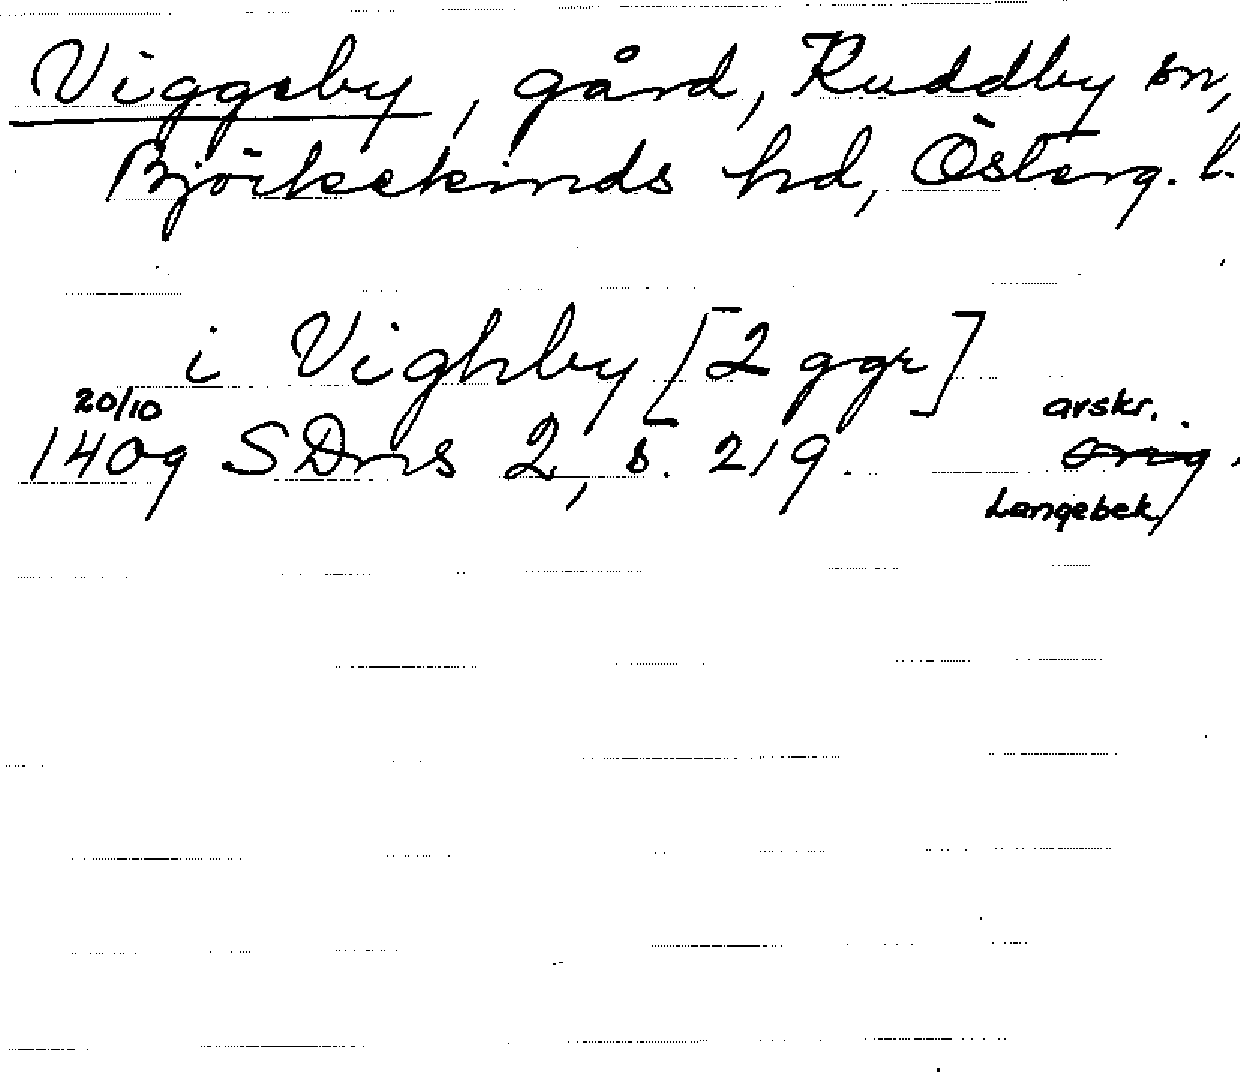 Viggeby, gård, Ruddby sn,
Björkekinds hd, Österg. l.
i Vighby [2 ggr]
20/10 avskr.
1409 SDns 2, s. 219. Orig.
Langebek